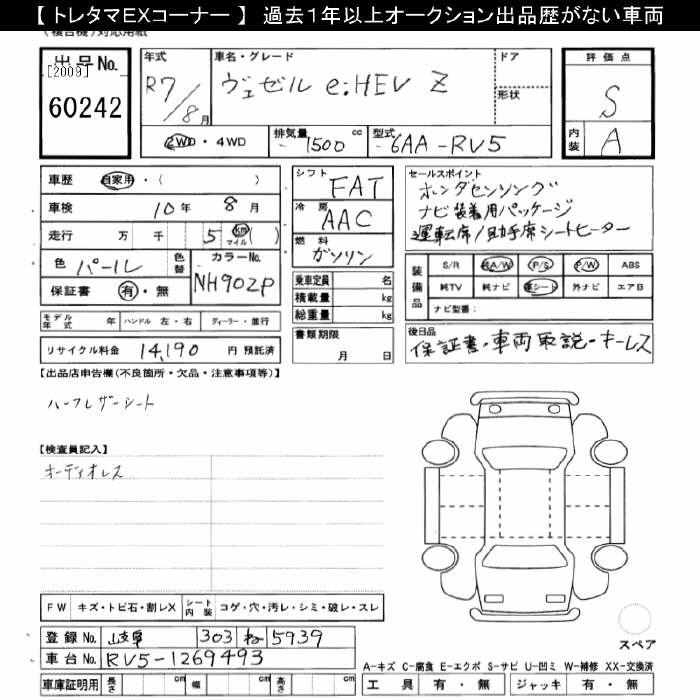 【 トレタマEXコーナー 】 過去1年以上オークション出品歴がない車両
出品No.
[2009]
60242
年式
R7/8月
車名・グレード
ヴェゼル e:HEV Z
ドア
形状
2WD・4WD
排気量 1500 cc
型式 6AA-RV5
評価点
S
内装 A
車歴 自家用・( )
車検 10年 8月
走行 万 千 5 km マイル ( )
色 パール 色替 カラーNo. NH902P
保証書 有・無
シフト FAT
冷房 AAC
燃料 ガソリン
乗車定員 名
積載量 kg
総重量 kg
書類期限
月 日
セールスポイント
ホンダセンシング
ナビ装着用パッケージ
運転席/助手席シートヒーター
装備品
S/R 純A/W P/S P/W ABS
純TV 純ナビ 革シート 外ナビ エアB
ナビ型番:
モデル年式 年 ハンドル 左・右 ディーラー・並行
リサイクル料金 14,190 円 預託済
後日品
保証書・車両取説・キーレス
【出品店申告欄(不良箇所・欠品・注意事項等)】
ハーフレザーシート
【検査員記入】
オーディオレス
FW キズ・トビ石・割レX シート内装 コゲ・穴・汚レ・シミ・破レ・スレ
登録No. 岐阜 303 ね 5939
車台No. RV5-1269493
車庫証明用 長さ cm 幅 cm 高さ cm
スペア
A-キズ C-腐食 E-エクボ S-サビ U-凹ミ W-補修 XX-交換済
工具 有・無 ジャッキ 有・無